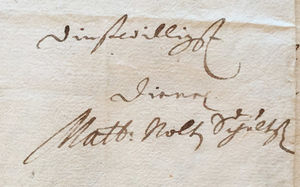 dinstwilligst
diener
Matth: Nolt Schultz